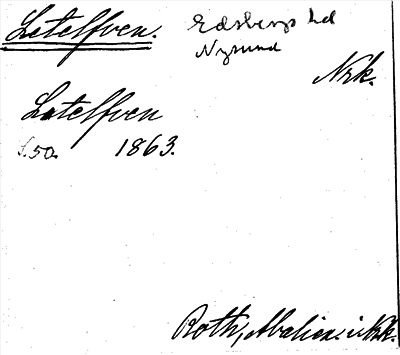 Letelfven.
Edsbergs hd
Nysund
Nrk.
Letelfven
s.50. 1863.
Roth, Malien i Nrk.